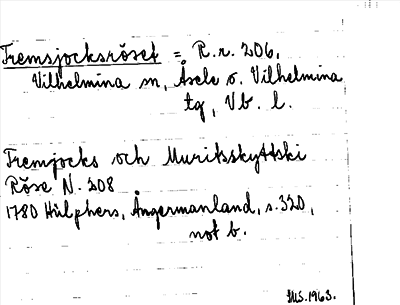 Fremsjocksröset = R.r. 206,
Vilhelmina sn, Åsele o. Vilhelmina
tg, Vb. l.
Fremjocks och Muritsskyttski
Röse N. 208
1780 Hülphers, Ångermanland, s. 320,
not b.
HLS. 1963.